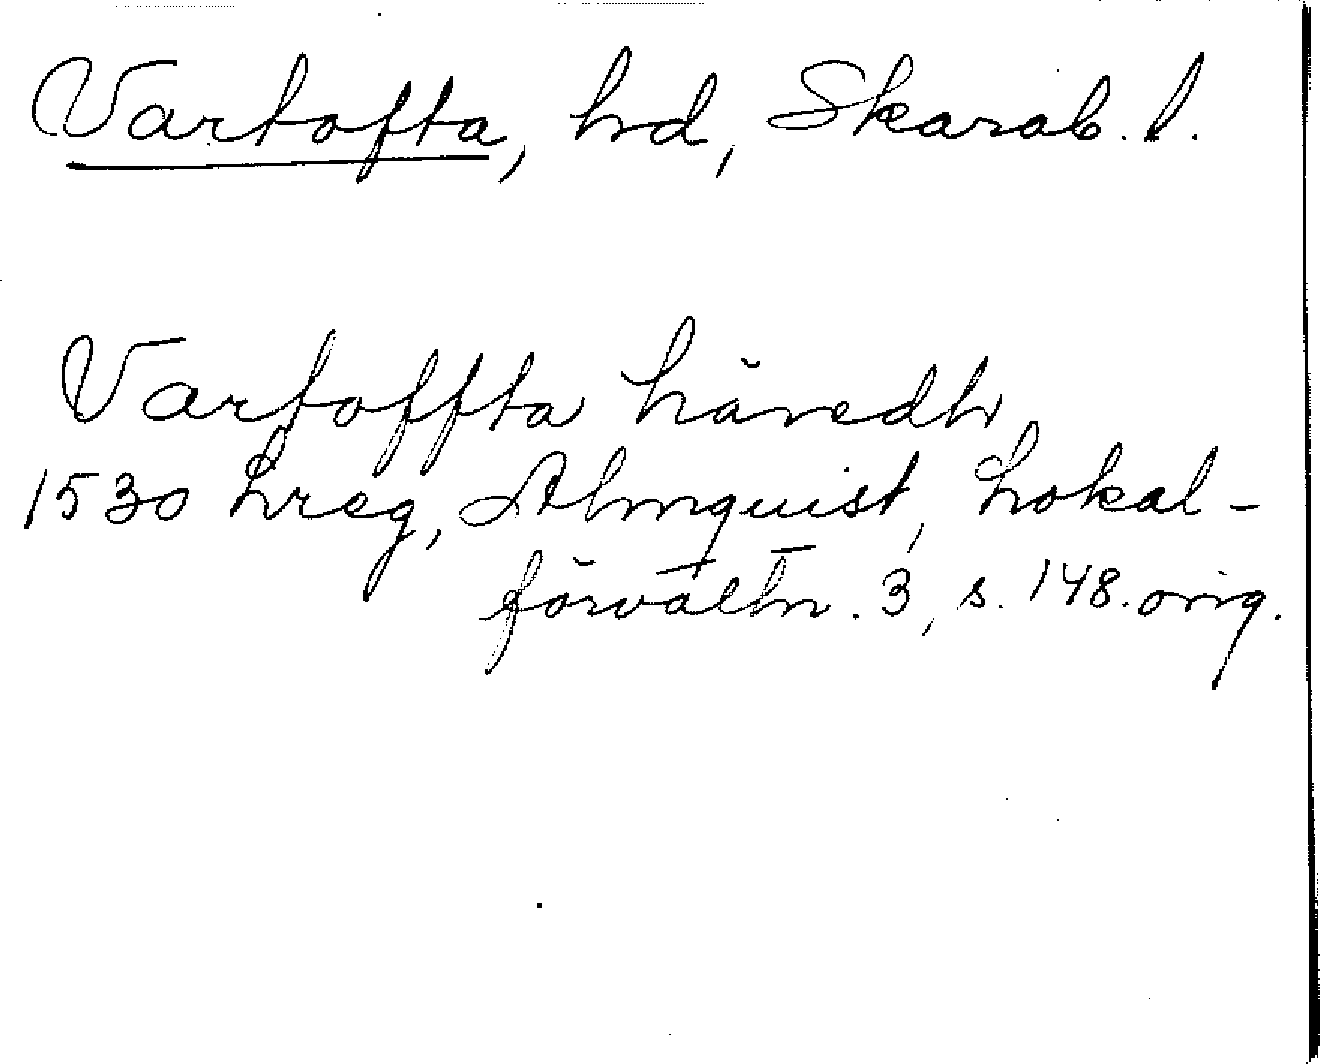 Vartofta, hd, Skarab. l.
Vartoffta häredh
1530 hreg, Almquist, Lokal-
förvaltn. 3, s. 148. orig.